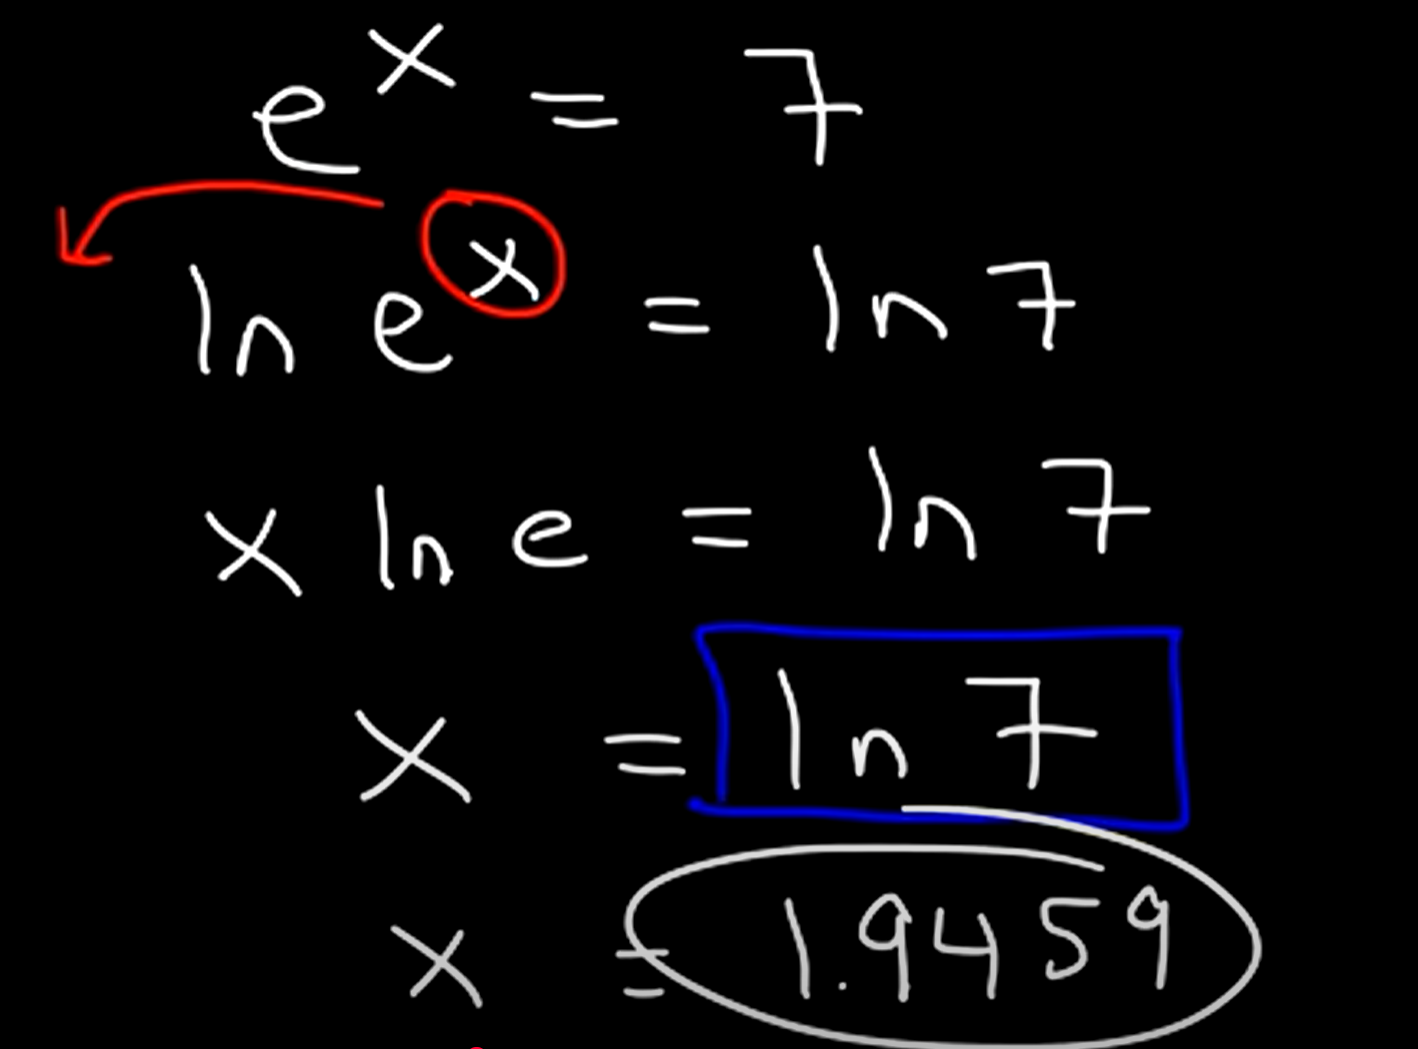 e^x = 7
ln e^x = ln 7
x ln e = ln 7
x = ln 7
x = 1.9459